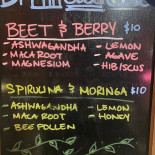 BEET & BERRY $10
- ASHWAGANDHA - LEMON
- MACA ROOT - AGAVE
- MAGNESIUM - HIBISCUS
SPIRULINA & MORINGA $10
- ASHWAGANDHA - LEMON
- MACA ROOT - HONEY
- BEE POLLEN